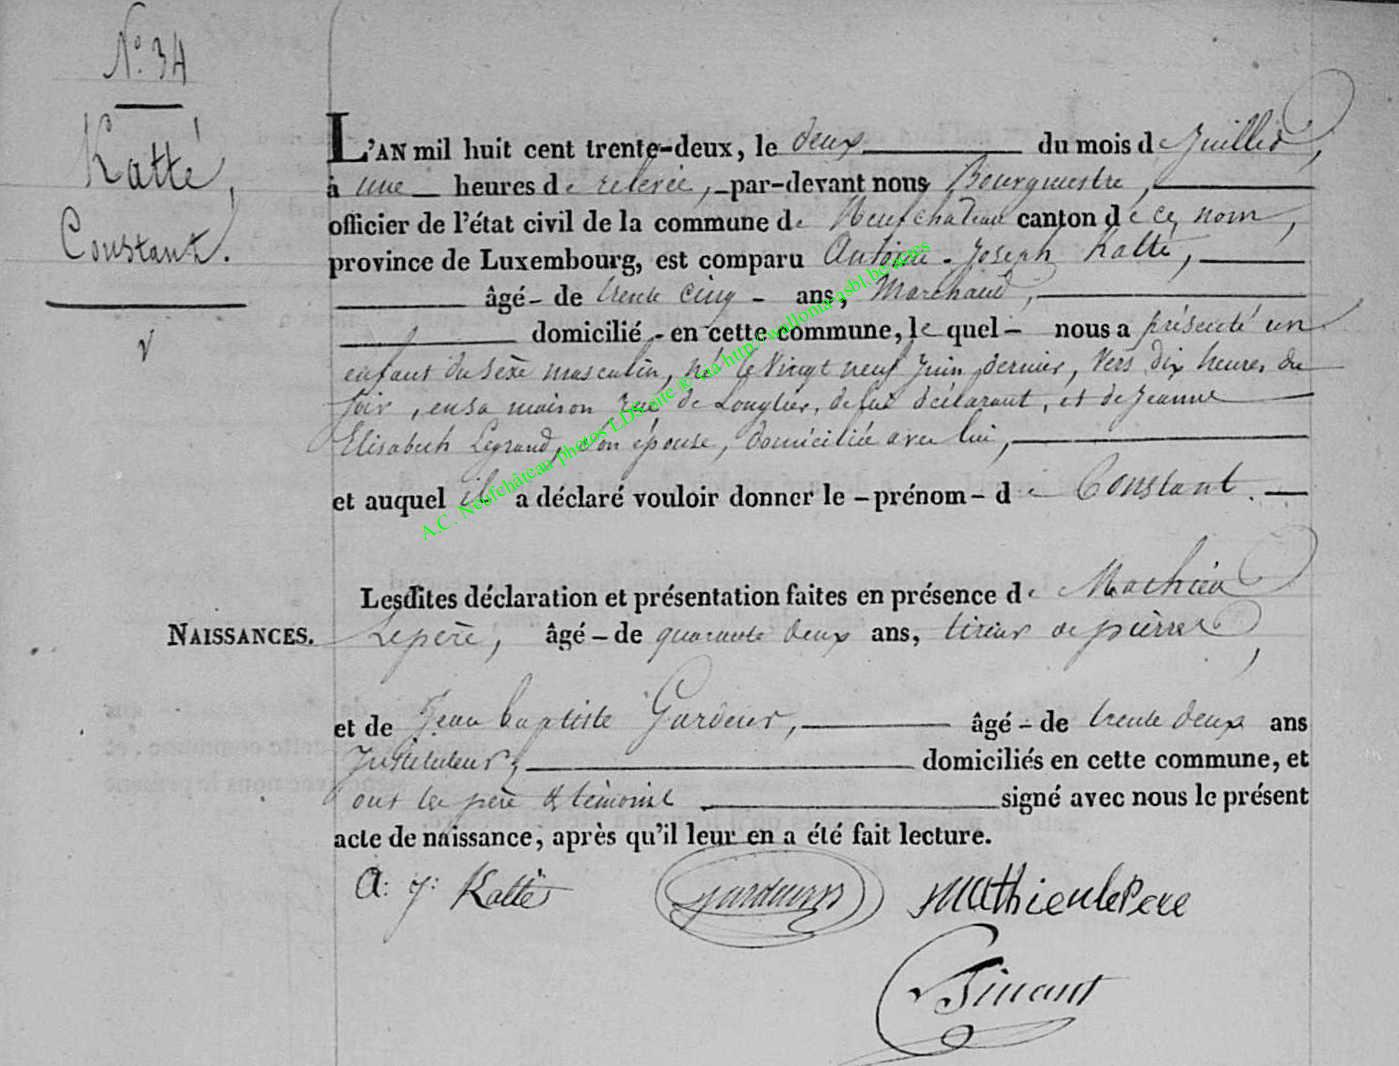 N° 34
Katté,
Constant.
L'AN mil huit cent trente-deux, le deux du mois de Juillet,
à une heures de relevée, par-devant nous Bourgmestre,
officier de l'état civil de la commune de Neufchateau canton de ce nom,
province de Luxembourg, est comparu Antoine-Joseph Katté,
âgé - de trente cinq - ans, Marchand,
domicilié - en cette commune, le quel - nous a présenté un
enfant du sèxe masculin, né le Vingt neuf Juin dernier, vers dix heures du
soir, en sa maison rue de Longlier, de lui déclarant, et de Jeanne
Elisabeth Legrand, son épouse, domiciliée avec lui,
et auquel il a déclaré vouloir donner le - prénom - de Constant.
Lesdites déclaration et présentation faites en présence de Mathieu
NAISSANCES. Lepère, âgé - de quarante deux ans, tireur de pierres,
et de Jean baptiste Gardeur, âgé - de trente deux ans
Instituteur, domiciliés en cette commune, et
ont les père & témoins signé avec nous le présent
acte de naissance, après qu'il leur en a été fait lecture.
A: J: Katté mathieu lepere
A.C. Neufchâteau photos LDS cité via http://wallonia-asbl.be/actes